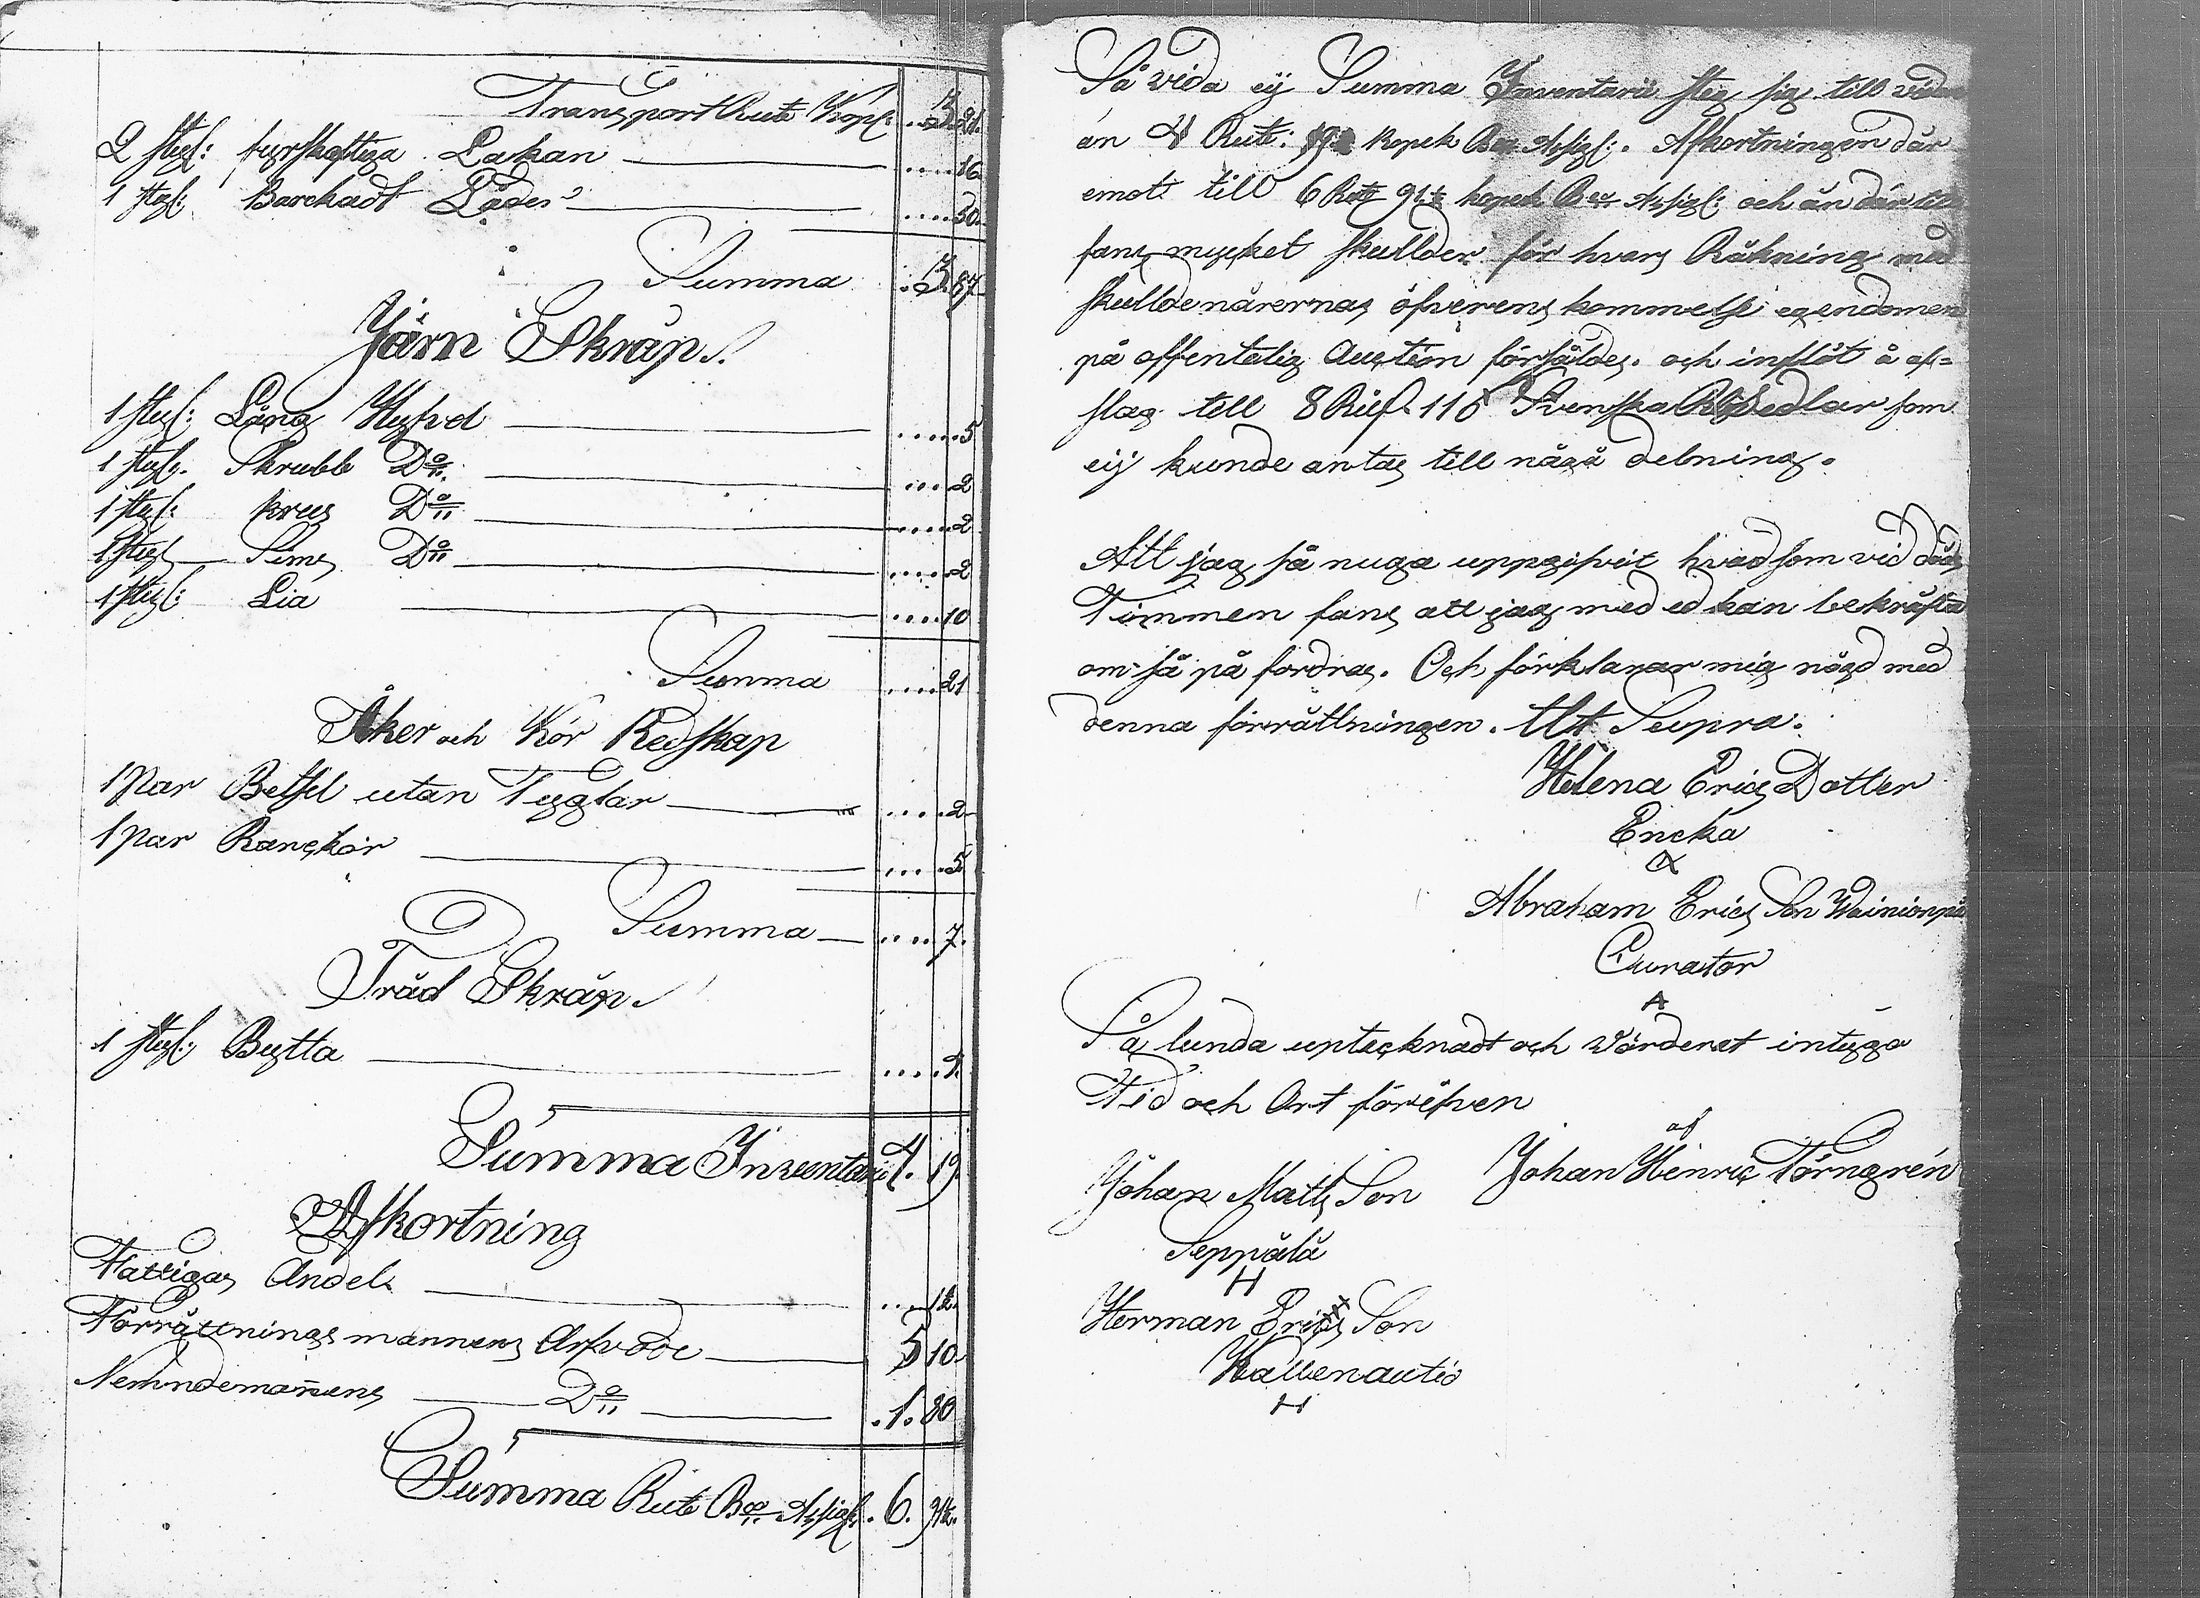 Transport Rub Kop: .. 3. 21.
2 styk: fyrskaftiga Lakan .... 16.
1 styk: Barckadt Läder .... 50.
Summa .. 3. 87
Järn Skräp.
1 styk: Lång Hyfvel ..... 5
1 styk. Skrubb Do .... 2
1 styk: krus Do .... 2
1 styk Sims Do .... 2
1 styk: Lia .... 10
Summa .... 21
Åker och Kör Redskap
1 Par Betsel utan Tyglar .... 2
1 par Ranckor .... 5
Summa .... 7.
Träd Skräp.
1 styk: Bytta .... 2.
Summa Inventarii 4. 19.
Afkortning
Fattigas Andel ... 1½.
Förrättningsmannens Arfvode 5 10.
Nemndemañens Do . 1. 80
Summa Rub Bco Assig: . 6. 91½.
Så vida ej Summa Inventarii steg sig till vidare
än 4 Rub: 19 kopek Bco Assig:. Afkortningen där
emott till 6 Rub 91½ kopek Bco Assig: och än där till
fans mycket skullder för hvars Räkning med
skulldenärernas öfverens kommelse egendomen
på offentelig Auction försåldes. och inflöt å af=
slag till 8 Rub 116 Svenska RGSedlar som
eij kunde antas till någå delning.
Att jag så nuga uppgifvit hvad som vid döds
Timmen fans att jag med ed kan bekräfta
om så på fordras. Och förklarar mig nögd med
denna förrättningen. Ut Supra.
Helena Erics Dotter
Encka
Abraham Erics Son Wainionpä
Curator
A
Så lunda uptecknadt och Värderat intyga
Tid och Ort förëfven
af
Johan Matts Son Johan Henric Törngrén
Seppälä
H
Herman Erics Son
Kallenautio
H